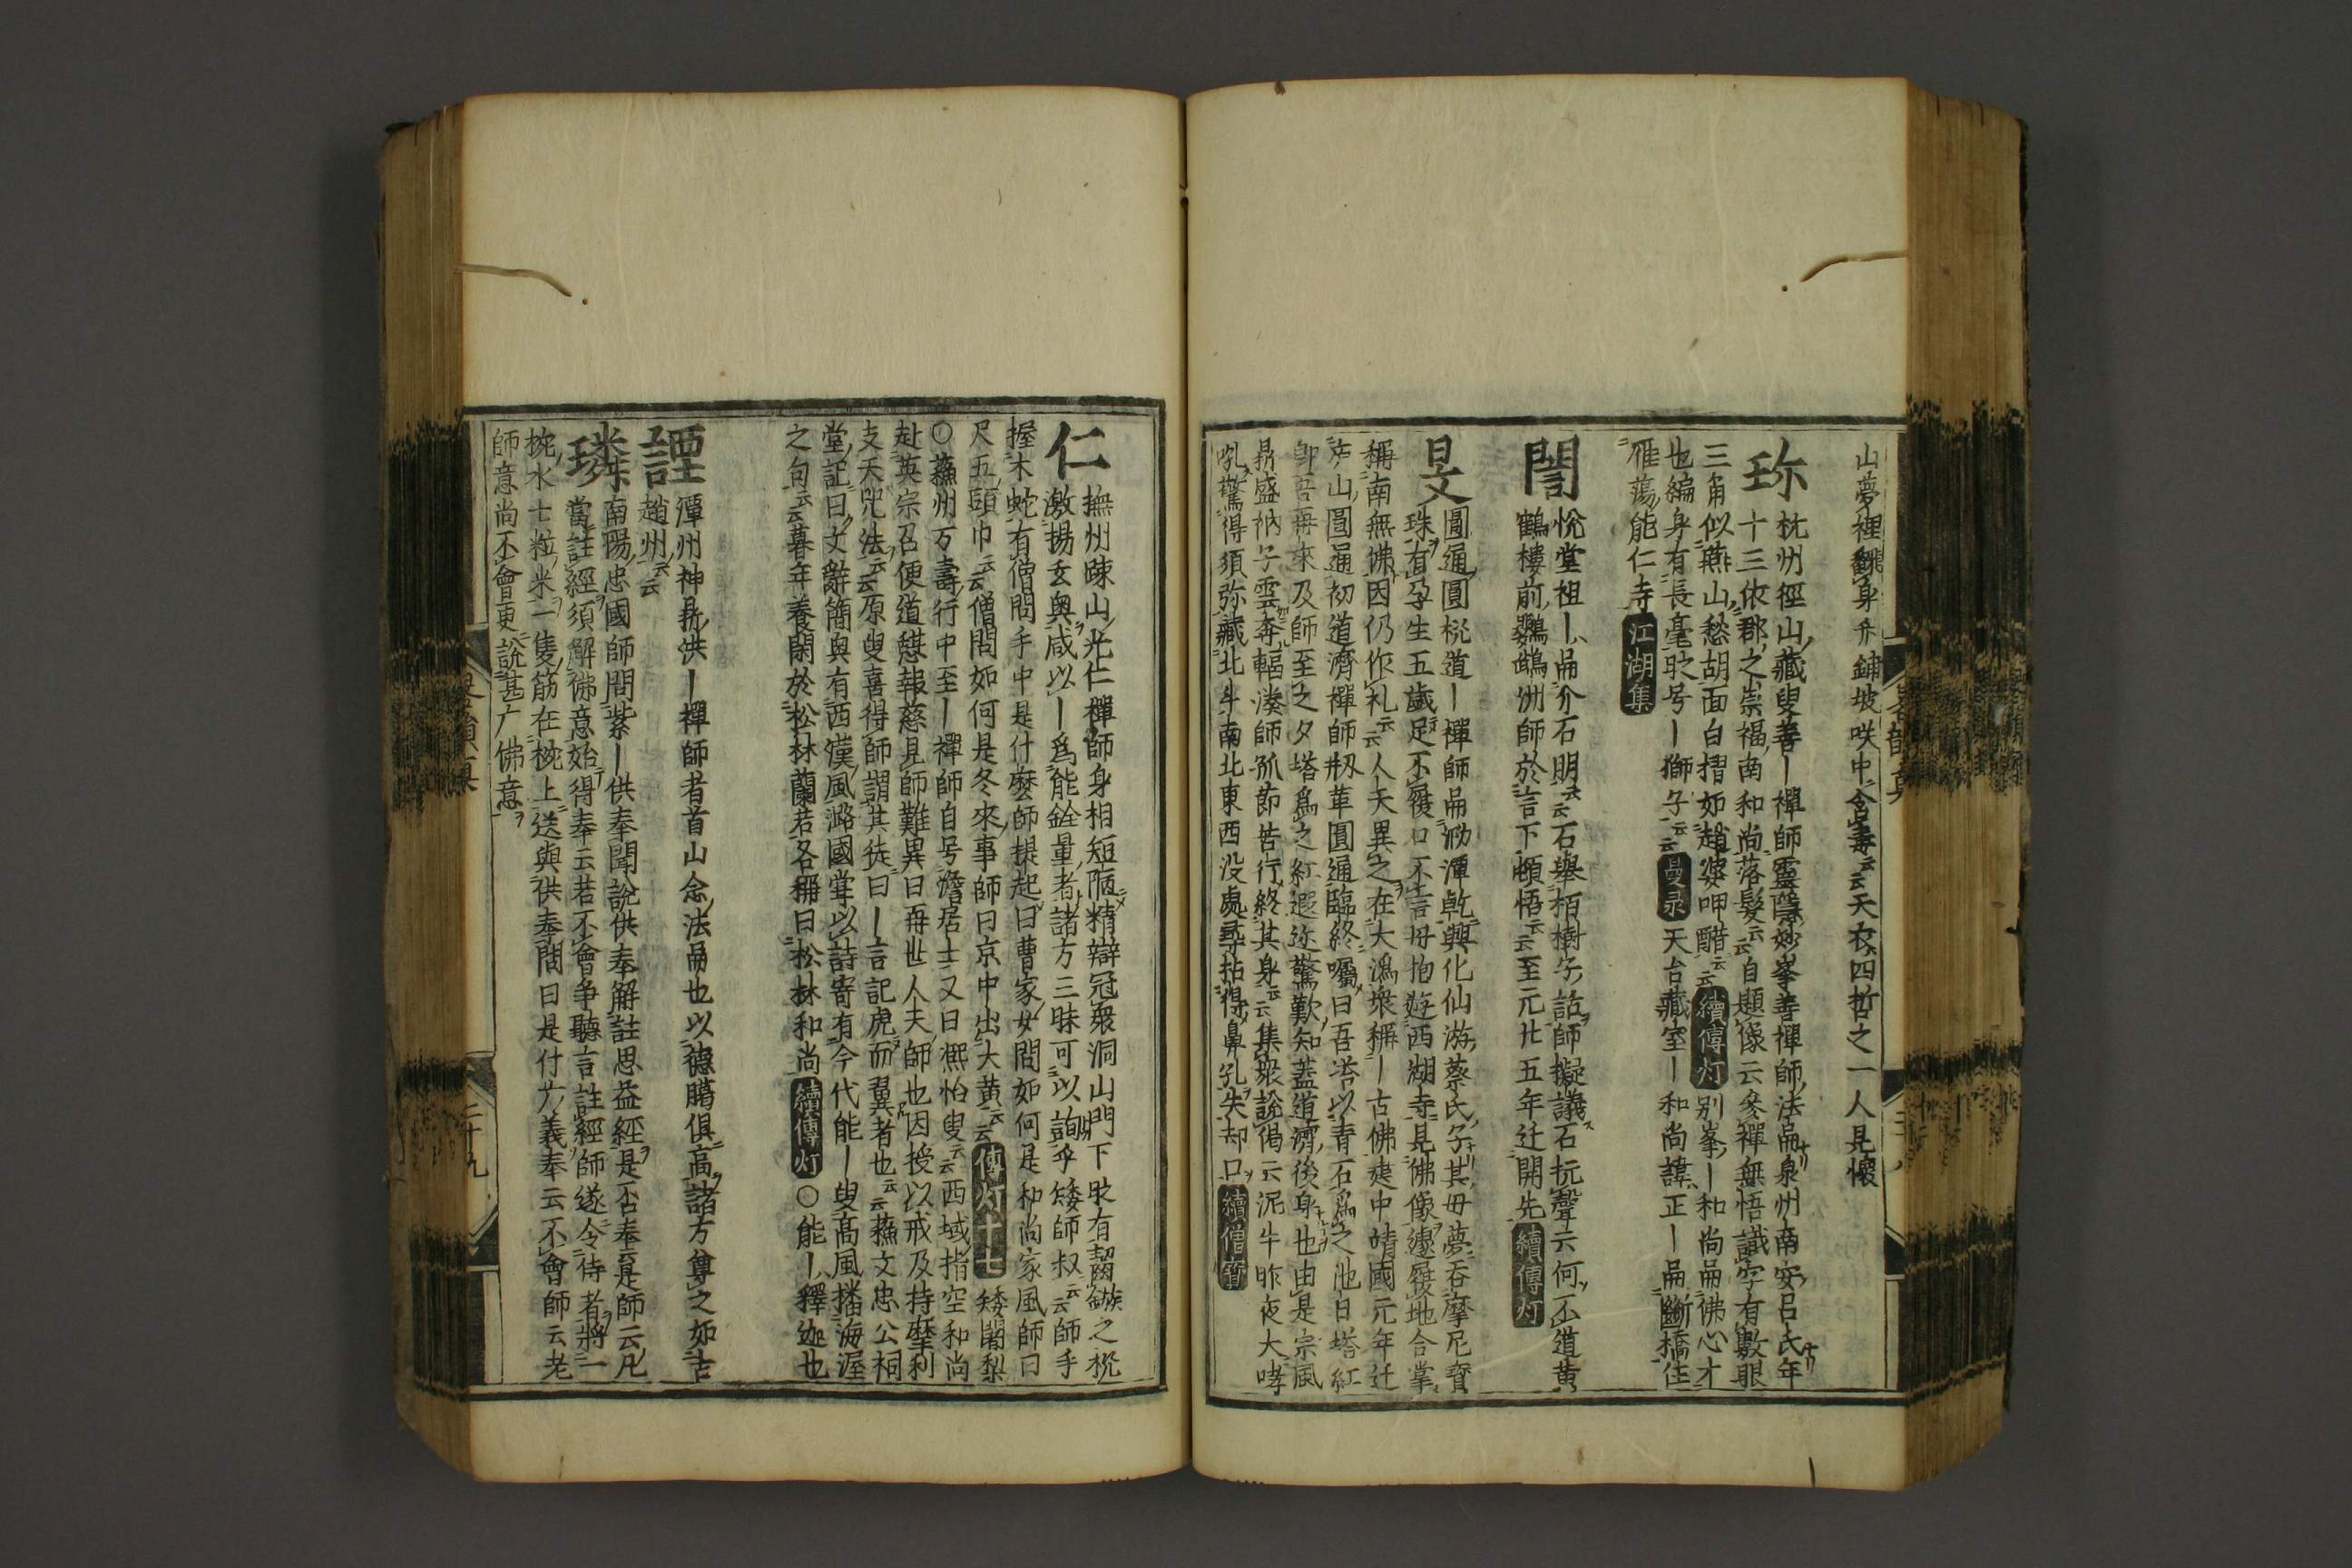 山夢裡翻身乔鋪坡咲中含毒云云天衣四哲之一人見懷
珎
杭州徑山藏叟善一禪師靈隱妙峯善禪師法嗣泉州南安呂氏年
十三依郡之崇福南和尚落髮云云自題像云参禪無悟識字有數眼
三角似燕山愁胡面白摺如趙婆呷醋云云續傳灯别峯一和尚嗣佛心才
也編身有長毫䏁号一獅子云云曼录天台藏室一和尚諱正一嗣斷橋住
雁蕩能仁寺江湖集
誾
悅堂祖一嗣介石明云云石擧栢樹子話師擬議石抗聲云何不道黄
鶴樓前鸚鵡洲師於言下頓悟云云至元廿五年迁開先續傳灯
旻
圓通圓機道一禪師嗣泐潭乾興化仙游蔡氏子其母夢吞摩尼寳
珠有孕生五歳足不履口不言母抱遊西湖寺見佛像遽履地合掌
稱南無佛因仍作礼云云人天異之在大潙衆稱一古佛建中靖國元年迁
庐山圓通初道濟禪師剏革圓通臨終囑曰吾塔以青石爲之他日塔紅
卽吾再來及師至之夕塔爲之紅遐迩驚歎知葢道濟後身也由是宗風
鼎盛衲子雲奔輻湊師孤節苦行終其身云云集衆說偈云泥牛昨夜大哮
吼驚得須弥藏北斗南北東西没處尋拈得鼻孔失却口續僧寳
仁
撫州疎山光仁禪師身相短陋精辯冠衆洞山門下䏁有齧鏃之機
激揚玄奥咸以一爲能銓量者諸方三昧可以詢乎矮師叔云云師手
握木蛇有僧問手中是什麼師提起曰曹家女問如何是和尚家風師曰
尺五頭巾云云僧問如何是冬來事師曰京中出大黄云云傳灯十七矮闍梨
○蘓州万壽行中至一禪師自号澹居士又曰熈怡叟云云西域指空和尚
赴英宗召便道憇報慈見師難異曰再世人夫師也因授以戒及持犛利
支天咒法云云原叟喜得師謂其徒曰一言記虎而翼者也云云蘓文忠公祠
堂記曰文辭簡與有西漢風潞國掌以詩寄有今代能一叟髙風播海渥
之句云云暮年養閑於松林蘭若各稱曰松林和尚續傳灯○能一釋迦也
諲
潭州神鼎洪一禪師者首山念法嗣也以德臈俱高諸方尊之如古
趙州云云
璘
南陽忠國師問紫一供奉聞說供奉解註思益經是否奉云是師云凡
當註經須解佛意始得奉云若不會争聽言註經師遂令待者將一
椀水七粒米一隻筋在椀上送與供奉問曰是什广義奉云不會師云老
師意尚不會更說甚广佛意